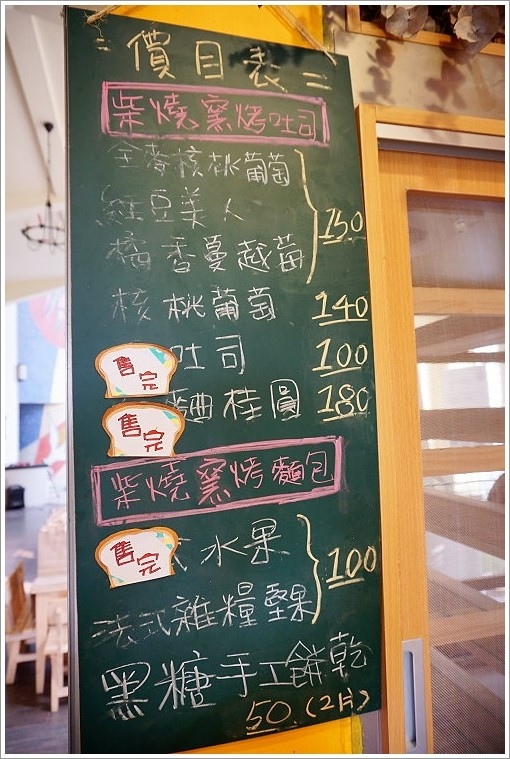 = 價目表 =
柴燒窯烤吐司
全麥核桃葡萄
紅豆美人 150
橘香蔓越莓
核桃葡萄 140
售完 吐司 100
售完 麴桂圓 180
柴燒窯烤麵包
售完 式水果
法式雜糧堅果 100
黑糖手工餅乾
50 (2片)